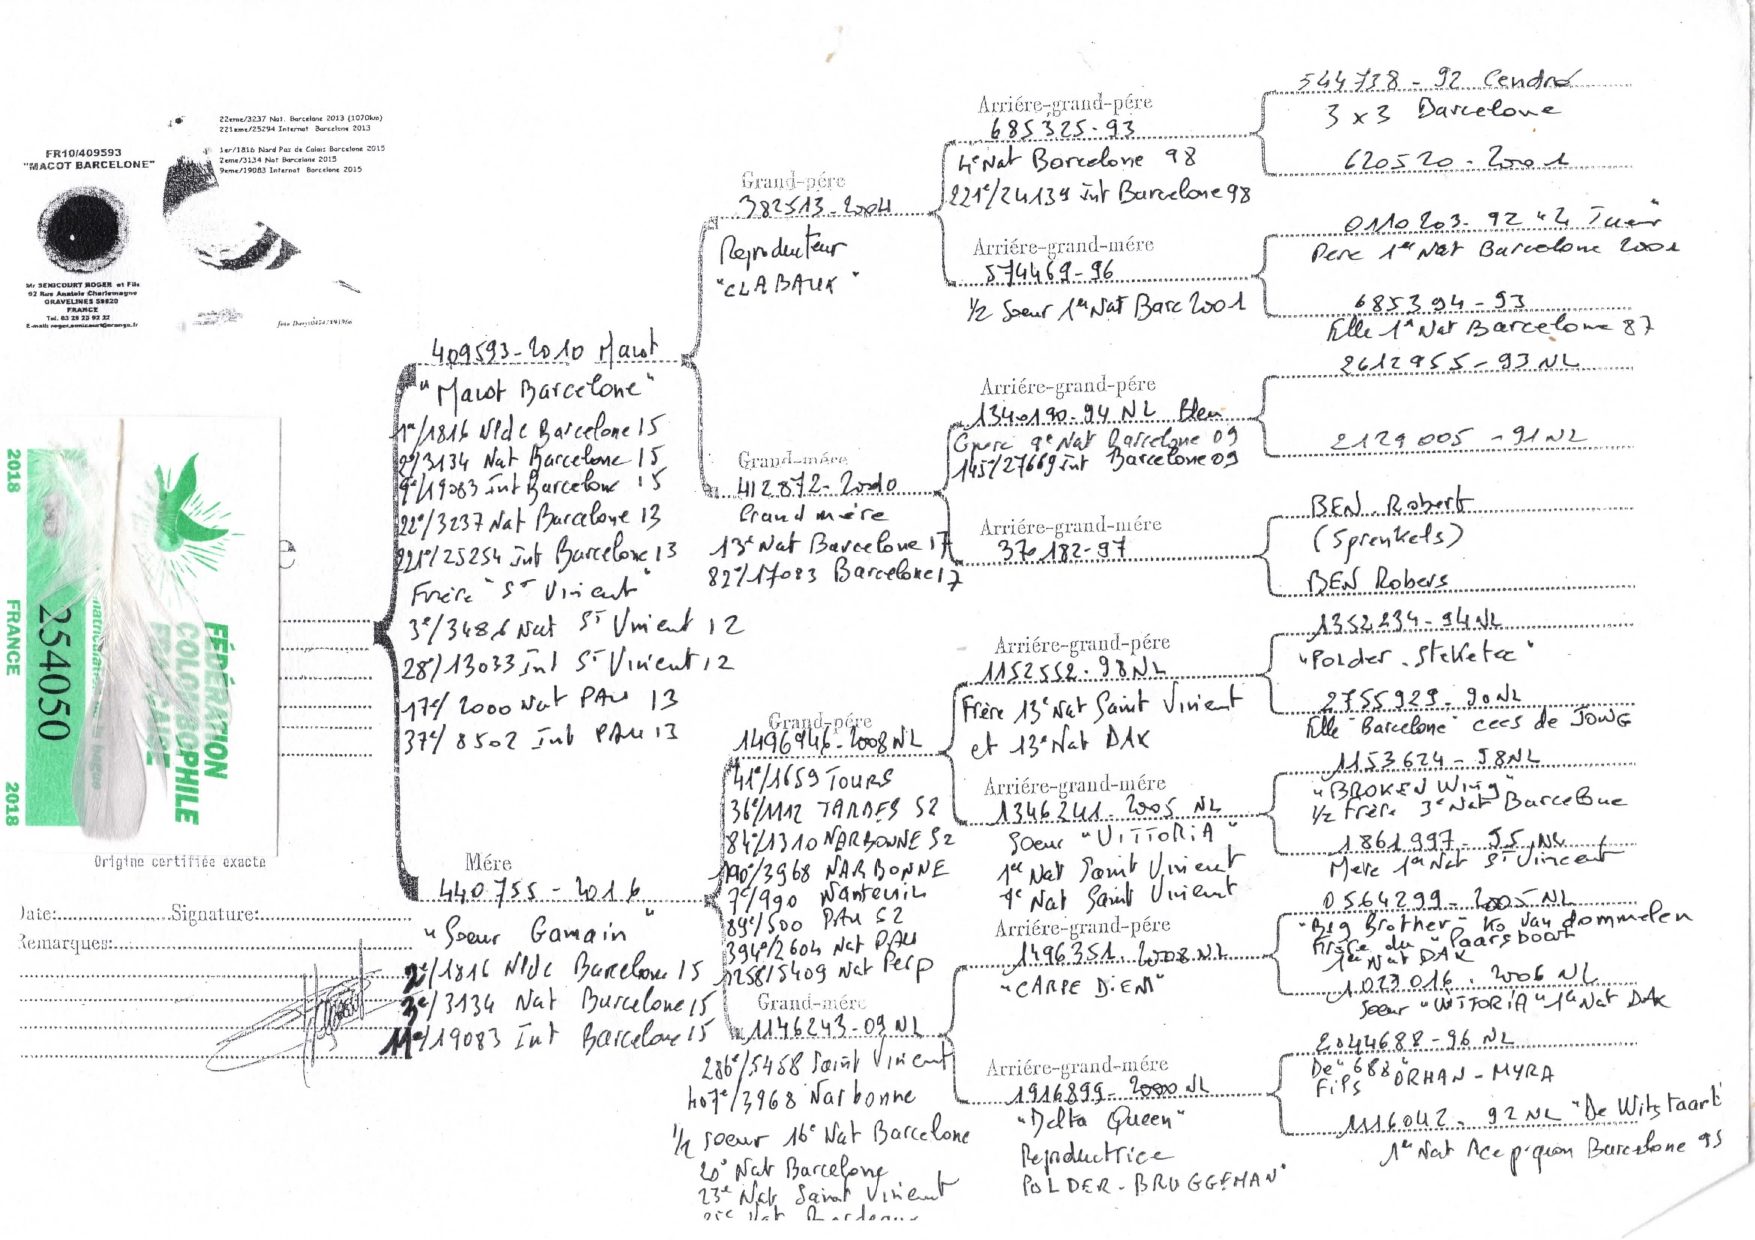 22eme/3237 Nat. Barcelone 2013 (1070km)
221eme/25294 Internat Barcelone 2013
1er/1816 Nord Pas de Calais Barcelone 2015
2eme/3134 Nat Barcelone 2015
9eme/19083 Internat Barcelone 2015
FR10/409593
"MACOT BARCELONE"
Mr SENICOURT ROGER et Fils
92 Rue Anatole Charlemagne
GRAVELINES 59820
FRANCE
Tel. 03 28 23 92 22
2018 FRANCE 2018
254050
FÉDÉRATION
COLOMBOPHILE
FRANÇAISE
Origine certifiée exacte
Date: Signature:
Remarques:
409593-2010 Macot
"Macot Barcelone"
1er/1816 NPdC Barcelone 15
2e/3134 Nat Barcelone 15
9e/19083 Int Barcelone 15
22e/3237 Nat Barcelone 13
221e/25254 Int Barcelone 13
Frère "St Vincent"
3e/3486 Nat St Vincent 12
28e/13033 Int St Vincent 12
17e/2000 Nat PAU 13
37e/8502 Int PAU 13
Mére
440755-2016
"Soeur Gamain"
2e/1816 NPdC Barcelone 15
3e/3134 Nat Barcelone 15
11e/19083 Int Barcelone 15
Grand-pére
382513-2004
Reproducteur
"CLABAUX"
Grand-mére
412872-2000
Grand mére
13e Nat Barcelone 17
82e/17083 Barcelone 17
Grand-pére
1496946-2008 NL
41e/1659 TOURS
36e/1112 TARBES S2
84e/1310 NARBONNE S2
190e/3968 NARBONNE
7e/990 Nanteuil
89e/500 PAU S2
394e/2604 Nat PAU
1258e/5409 Nat Perp
Grand-mére
1146243-09 NL
286e/5458 Saint Vincent
407e/3968 Narbonne
1/2 soeur 16e Nat Barcelone
20e Nat Barcelone
23e Nat Saint Vincent
Nat Bordeaux
Arriére-grand-pére
685325-93
4e Nat Barcelone 98
221e/24139 Int Barcelone 98
Arriére-grand-mére
574469-96
1/2 Soeur 1er Nat Barc 2001
Arriére-grand-pére
1340190-94 NL Bleu
Gpere 9e Nat Barcelone 09
145e/27669 Int Barcelone 09
Arriére-grand-mére
370182-97
Arriére-grand-pére
1152552-98 NL
Frère 13e Nat Saint Vincent
et 13e Nat DAX
Arriére-grand-mére
1346241-2005 NL
Soeur "VITTORIA"
1er Nat Saint Vincent
1e Nat Saint Vincent
Arriére-grand-pére
1496351-2008 NL
"CARPE DIEM"
Arriére-grand-mére
1916899-2000 NL
"Delta Queen"
Reproductrice
POLDER-BRUGGEMAN"
544738-92 Cendré
3x3 Barcelone
620520-2001
0110203-92 "Le Tueur"
Pere 1er Nat Barcelone 2001
685394-93
Fille 1er Nat Barcelone 87
2612955-93 NL
2129005-91 NL
BEN Robert
(Sprenkels)
BEN Robers
1352234-94 NL
"Polder-Steketee"
2755929-90 NL
Fille "Barcelone" cees de JONG
1153624-98 NL
"BROKEN Wing"
1/2 Frère 3e Nat Barcelone
1861997-95 NL
Mere 1er Nat St Vincent
0564299-2005 NL
"Big Brother-Ko Van Dommelen
Frère du "Paarsboart
1er Nat DAX
1023016-2006 NL
Soeur "VITTORIA" 1er Nat DAX
2044688-96 NL
De "688"
Fils ORHAN-MYRA
1116042-92 NL "De Witstaart
1er Nat Ace pigeon Barcelone 95